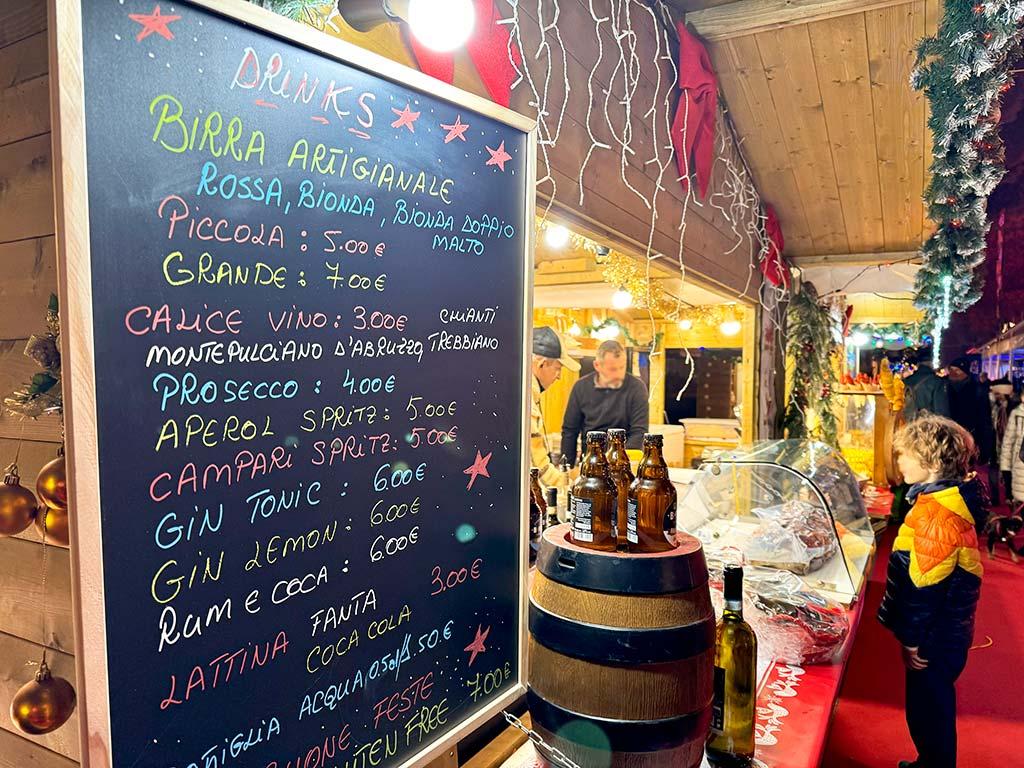 DRINKS
BIRRA ARTIGIANALE
ROSSA, BIONDA, BIONDA DOPPIO
MALTO
PICCOLA : 5.00€
GRANDE : 7.00€
CALICE VINO : 3.00€ CHIANTI
MONTEPULCIANO D'ABRUZZO, TREBBIANO
PROSECCO : 4.00€
APEROL SPRITZ : 5.00€
CAMPARI SPRITZ : 5.00€
GIN TONIC : 6.00€
GIN LEMON : 6.00€
RUM E COCA : 6.00€
LATTINA FANTA 3.00€
COCA COLA
ACQUA 0.5
FESTE
FREE 7.00€